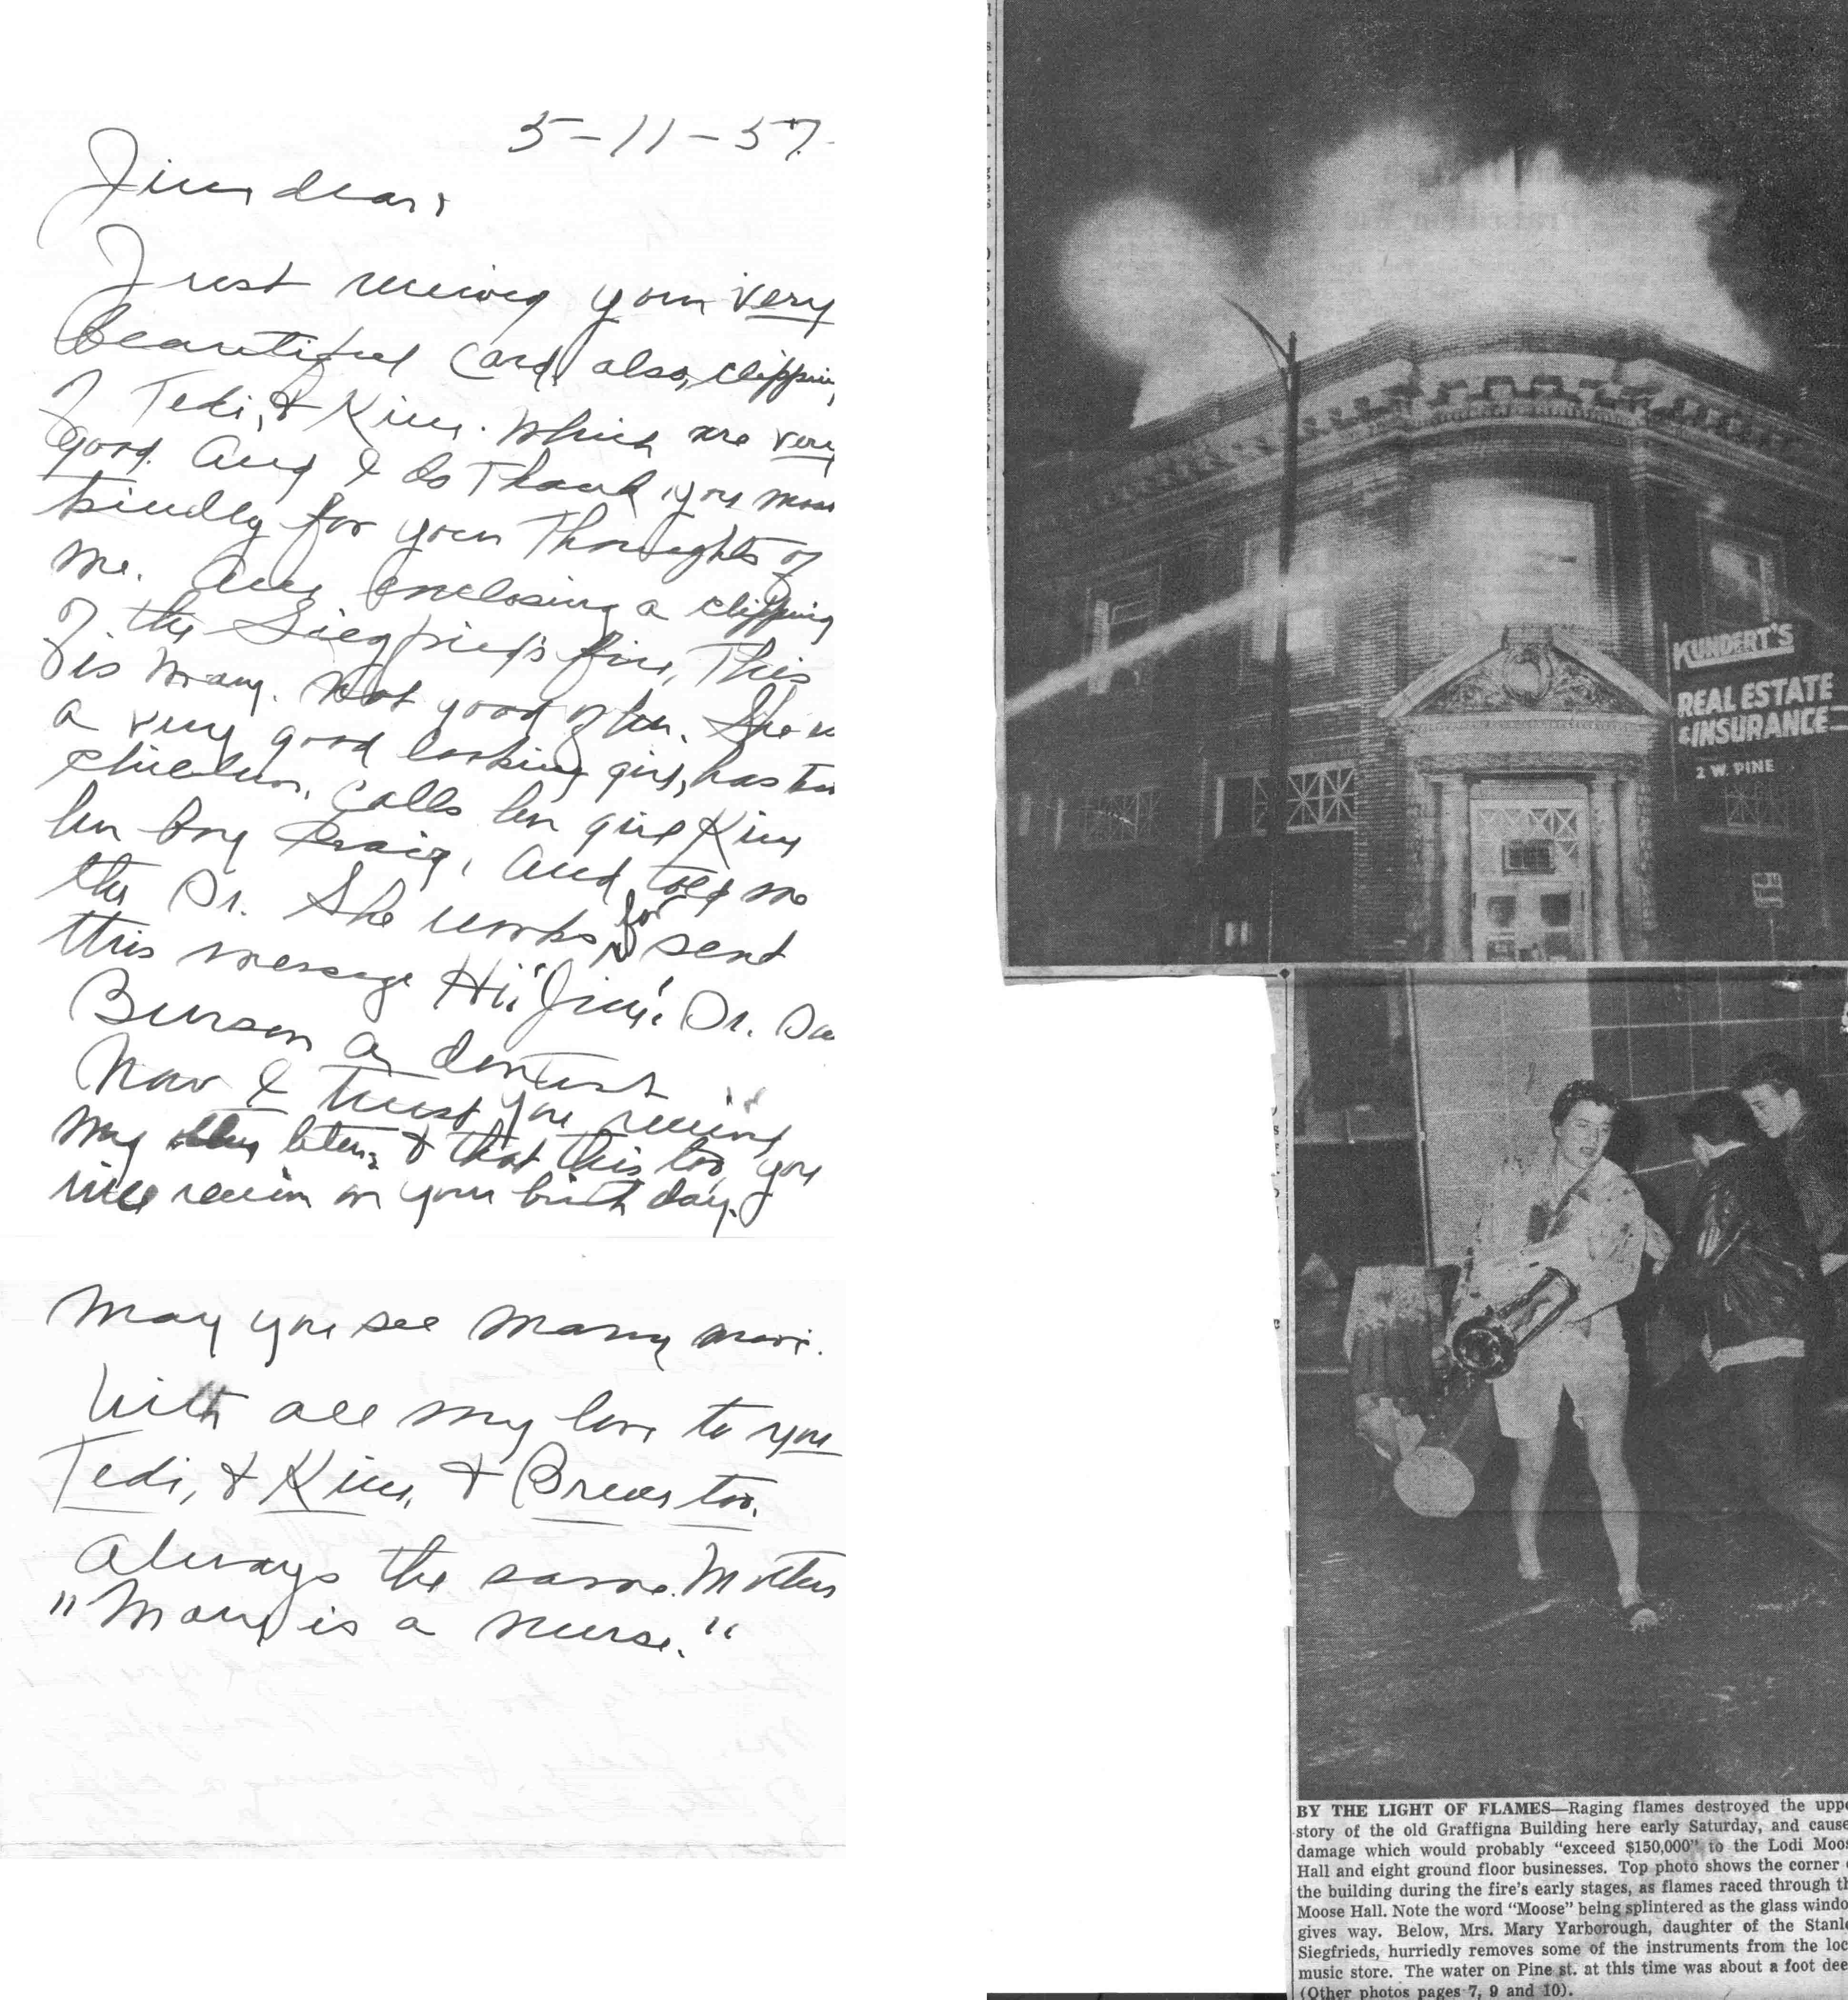 5-11-57.
Jim dear,
Just received your very
beautiful card, also, clipping
of Tedi, & Kim. Which are very
good. And I do Thank you most
kindly for your Thoughts of
me. Am enclosing a clipping
of the Siegfried's fire, This
is Mary. Not good of her. She is
a very good looking girl, has two
children, calls her girl Kim
her boy Craig, and told me
the Dr. She works for sent
this message Hi "Jim". Dr.
Burson a dentist
Now I trust you received
my letter, & that this too, you
will receive on your birth day.
May you see many more.
With all my love to you
Tedi, & Kim, & too.
Always the same. Mother
"Mary is a nurse."
KUNDERT'S
REAL ESTATE
& INSURANCE
2 W. PINE
BY THE LIGHT OF FLAMES—Raging flames destroyed the uppe
story of the old Graffigna Building here early Saturday, and cause
damage which would probably "exceed $150,000" to the Lodi Moos
Hall and eight ground floor businesses. Top photo shows the corner
the building during the fire's early stages, as flames raced through th
Moose Hall. Note the word "Moose" being splintered as the glass windo
gives way. Below, Mrs. Mary Yarborough, daughter of the Stanle
Siegfrieds, hurriedly removes some of the instruments from the loc
music store. The water on Pine st. at this time was about a foot dee
(Other photos pages 7, 9 and 10).